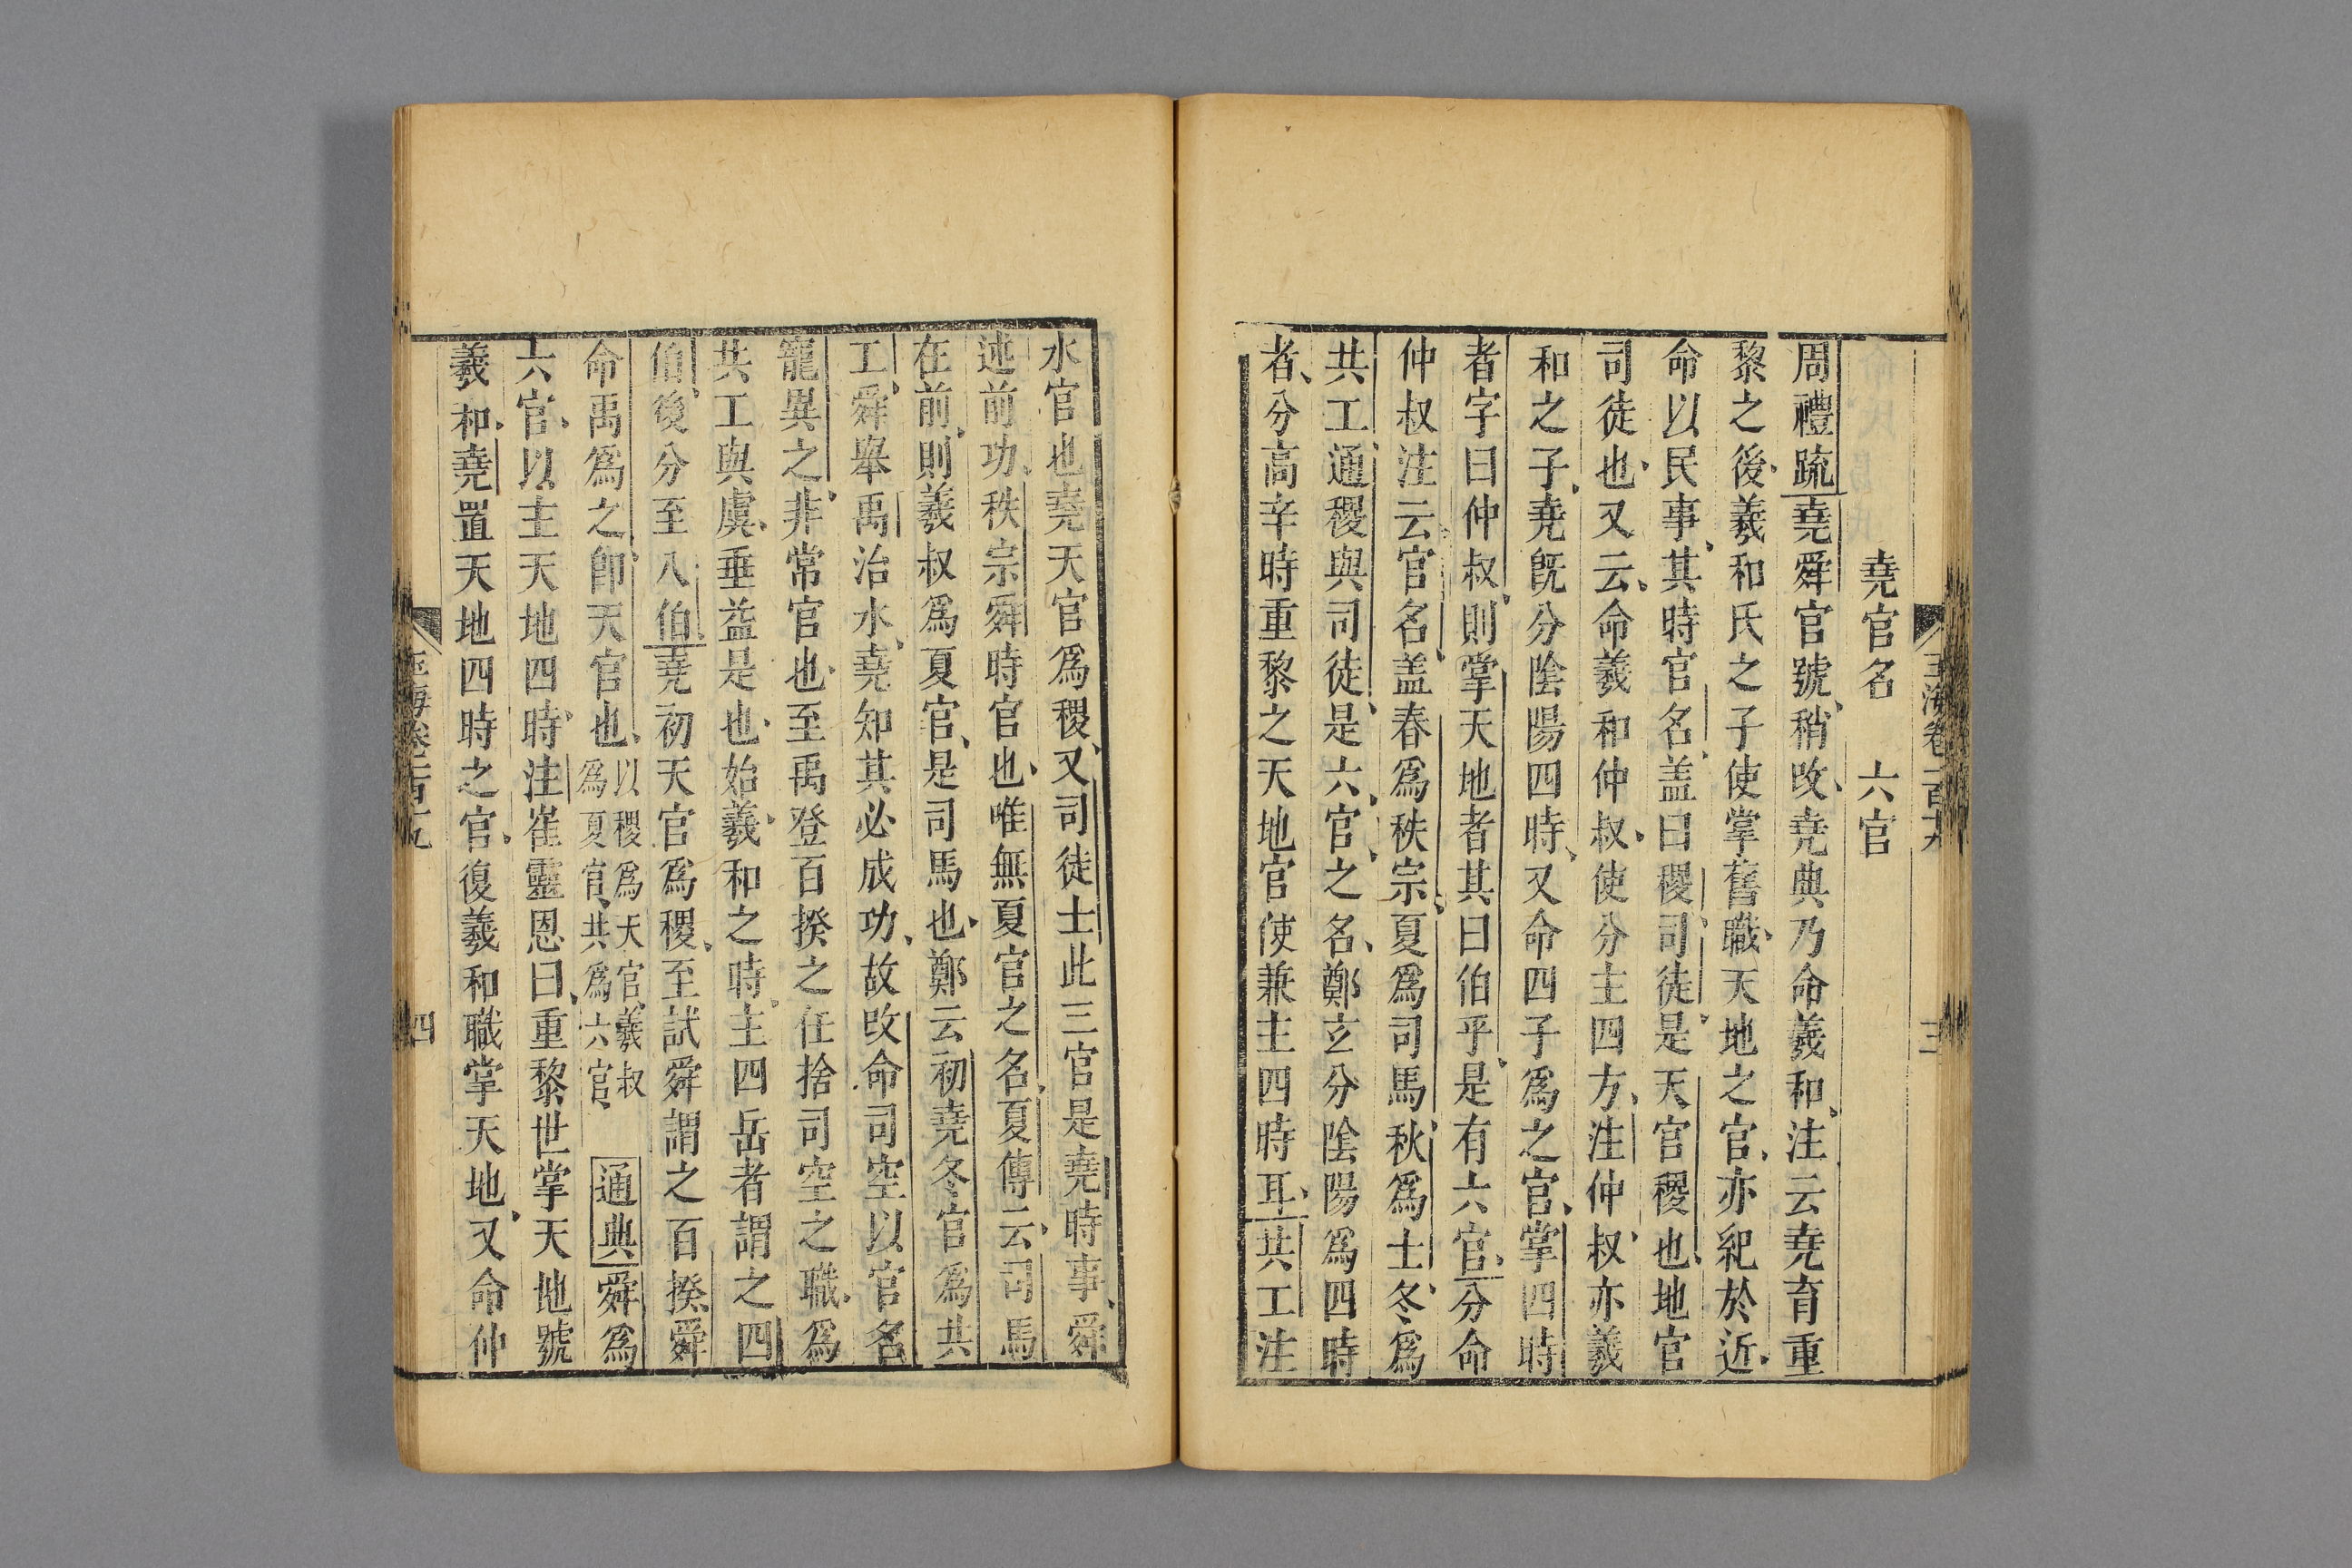 堯官名　六官
周禮疏堯舜官號稍改堯典乃命羲和注云堯育重
黎之後羲和氏之子使掌舊職天地之官亦紀於近
命以民事其時官名盖曰稷司徒是天官稷也地官
司徒也又云命羲和仲叔使分主四方注仲叔亦羲
和之子堯旣分陰陽四時又命四子爲之官掌四時
者字曰仲叔則掌天地者其曰伯乎是有六官分命
仲叔注云官名盖春爲秩宗夏爲司馬秋爲士冬爲
共工通稷與司徒是六官之名鄭玄分陰陽爲四時
者分高辛時重黎之天地官使兼主四時耳共工注
水官也堯天官爲稷又司徒士此三官是堯時事舜
述前功秩宗舜時官也唯無夏官之名夏傳云司馬
在前則羲叔爲夏官是司馬也鄭云初堯冬官爲共
工舜舉禹治水堯知其必成功故改命司空以官名
寵異之非常官也至禹登百揆之任捨司空之職爲
共工與虞垂益是也始羲和之時主四岳者謂之四
伯後分至八伯堯初天官爲稷至試舜謂之百揆舜
命禹爲之卽天官也以稷爲天官羲叔爲夏官共爲六官　通典舜爲
六官以主天地四時注崔靈恩曰重黎世掌天地號
羲和堯置天地四時之官復羲和職掌天地又命仲
四